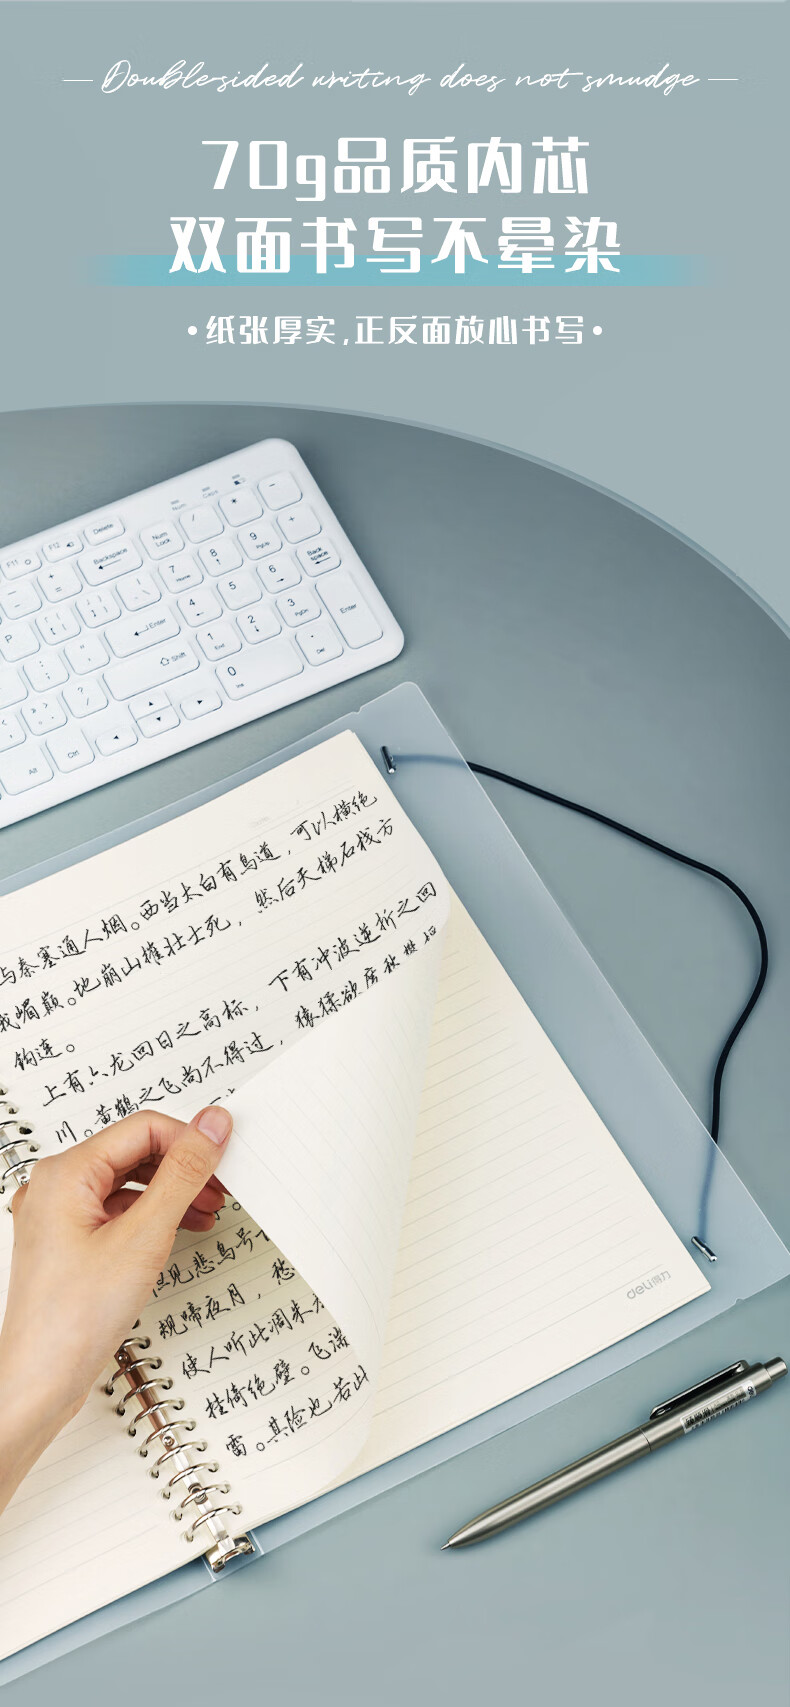 Double-sided writing does not smudge
70g品质内芯
双面书写不晕染
•纸张厚实,正反面放心书写•
F11
F12
Delete
Backspace
Num Lock
Num
Caps
/
*
-
7 Home
8
9 PgUp
+
Back space
P
Enter
4
5
6
Shift
1 End
2
3 PgDn
Enter
0 Ins
Del
Alt
Ctrl
与秦塞通人烟。西当太白有鸟道，可以横绝
峨嵋巅。地崩山摧壮士死，然后天梯石栈方
钩连。
上有六龙回日之高标，下有冲波逆折之回
川。黄鹤之飞尚不得过，猿猱欲度愁攀
但见悲鸟号
规啼夜月，愁
使人听此凋朱
挂倚绝壁。飞湍
雷。其险也若此
deli得力